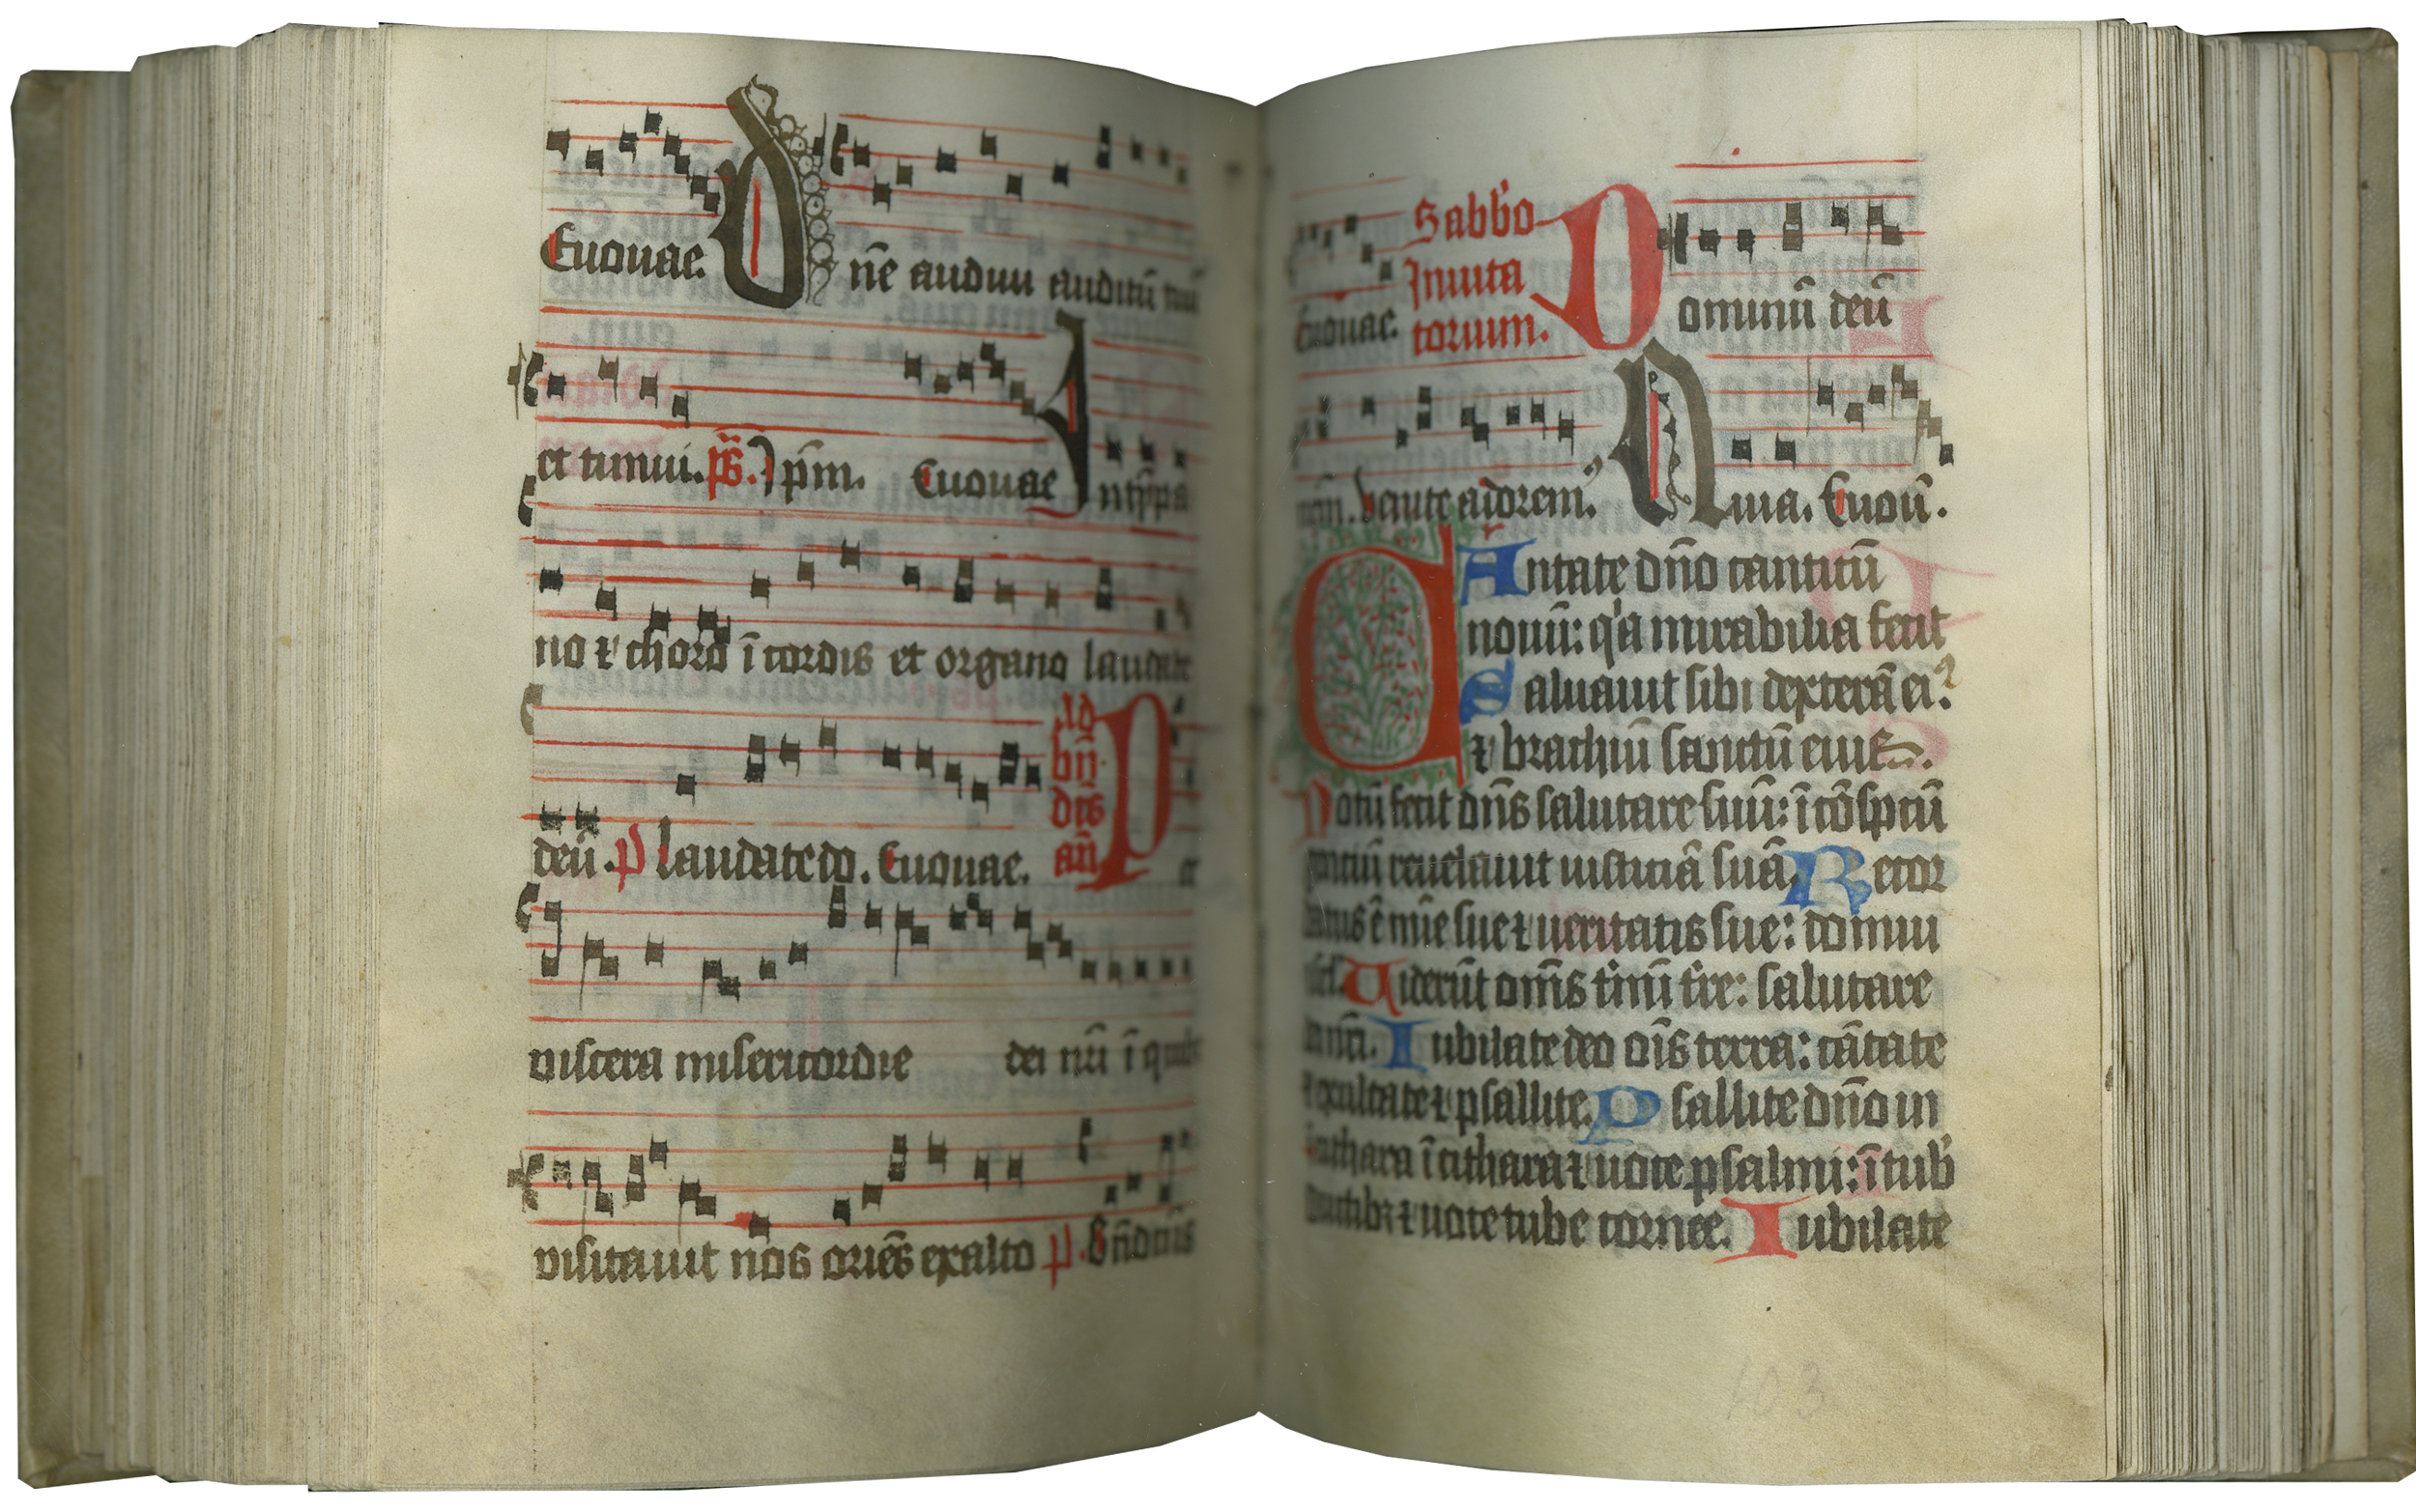 Euouae. Dn̄e audiui auditū tuū
et timui. ps̄. Ip̄m. Euouae In tȳpa
no ⁊ choro ī cordis et organo laudate
deū. p̄ laudate do. Euouae. Ad bn̄ dcs an̄ Per
viscera misericordie dei nr̄i ī quib
visitauit nos oriēs exalto p̄. Bn̄dictus
Euouae. Sabb'o Inuita torium. Dominū deū
nr̄m. venite adorem᷒ Quia. Euoū.
CAntate dn̄o canticū
nouū: q'a mirabilia fecit
Saluauit sibi dexterā ei᷒.
⁊ brachiū sanctū eius.
Notū fecit dn̄s salutare suū: ī cōsp̄tū
gentiū reuelauit iusticiā suā. Recor
datus ē mīe sue ⁊ ueritatis sue: domui
isrl. Viderūt om̄s tīni tr̄e: salutare
dei nr̄i. Iubilate deo oīs terra: cātate
⁊ exultate ⁊ psallite. Psallite dn̄o in
cithara ī cithara ⁊ uoce psalmi: ī tub'
ductilibꝫ ⁊ uoce tube cornee. Iubilate
103